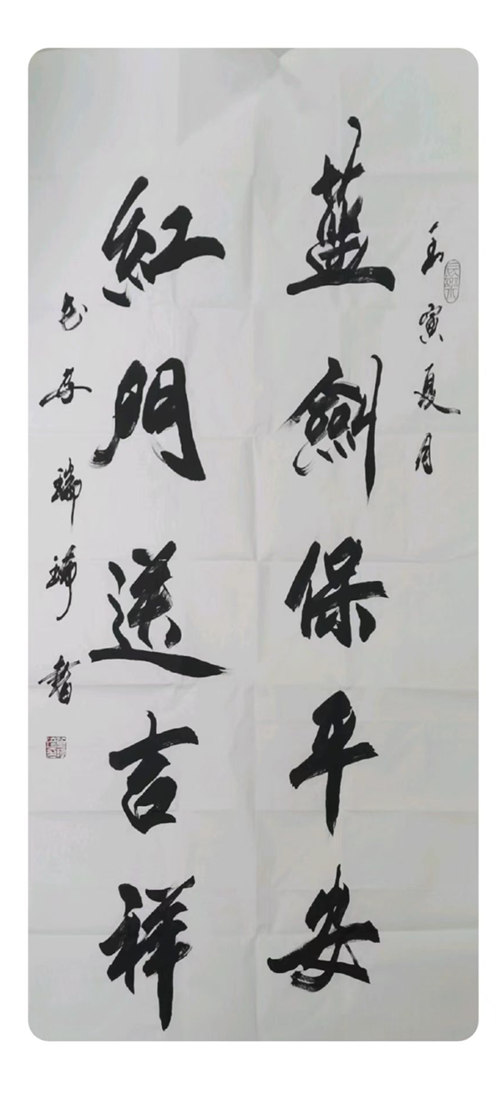 壬寅夏月
藍劍保平安
紅門送吉祥
安瑞琦書